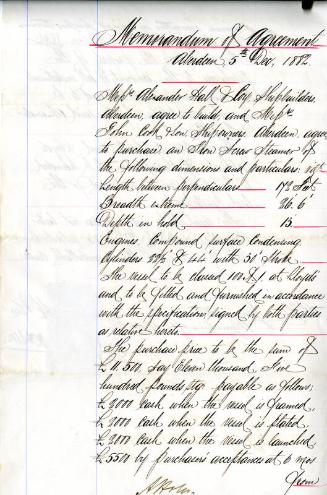 Memorandum of Agreement
Aberdeen 5th Dec. 1882.
Messrs Alexander Hall & Coy, Shipbuilders,
Aberdeen agree to build, and Messrs
John Cook & Son Shipowners Aberdeen, agree
to purchase an Iron Screw Steamer of
the following dimensions and particulars vizt
Length between perpendiculars 172 feet
Breadth extreme 26.6
Depth in hold 13
Engines, Compound surface condensing
Cylinders & 44 with 31 Stroke
The vessel to be classed 100 A.1. at Lloyds
and to be fitted and furnished in accordance
with the specifications signed by both parties
as relative hereto.
The purchase price to be the sum of
£11,500 say Eleven thousand, Five
hundred pounds Stg payable as follows:
£2000 Cash when the vessel is framed
£2000 Cash when the vessel is plated
£2000 Cash when the vessel is launched
£5500 by purchasers acceptances at 6 mos
from